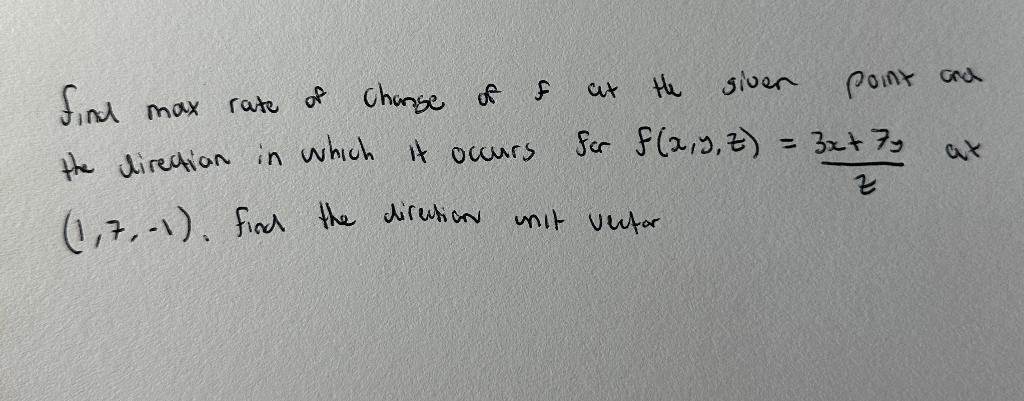 find max rate of change of f at the given point and
the direction in which it occurs for f(x,y,z) = 3x+7y/z at
(1,7,-1). find the direction unit vector